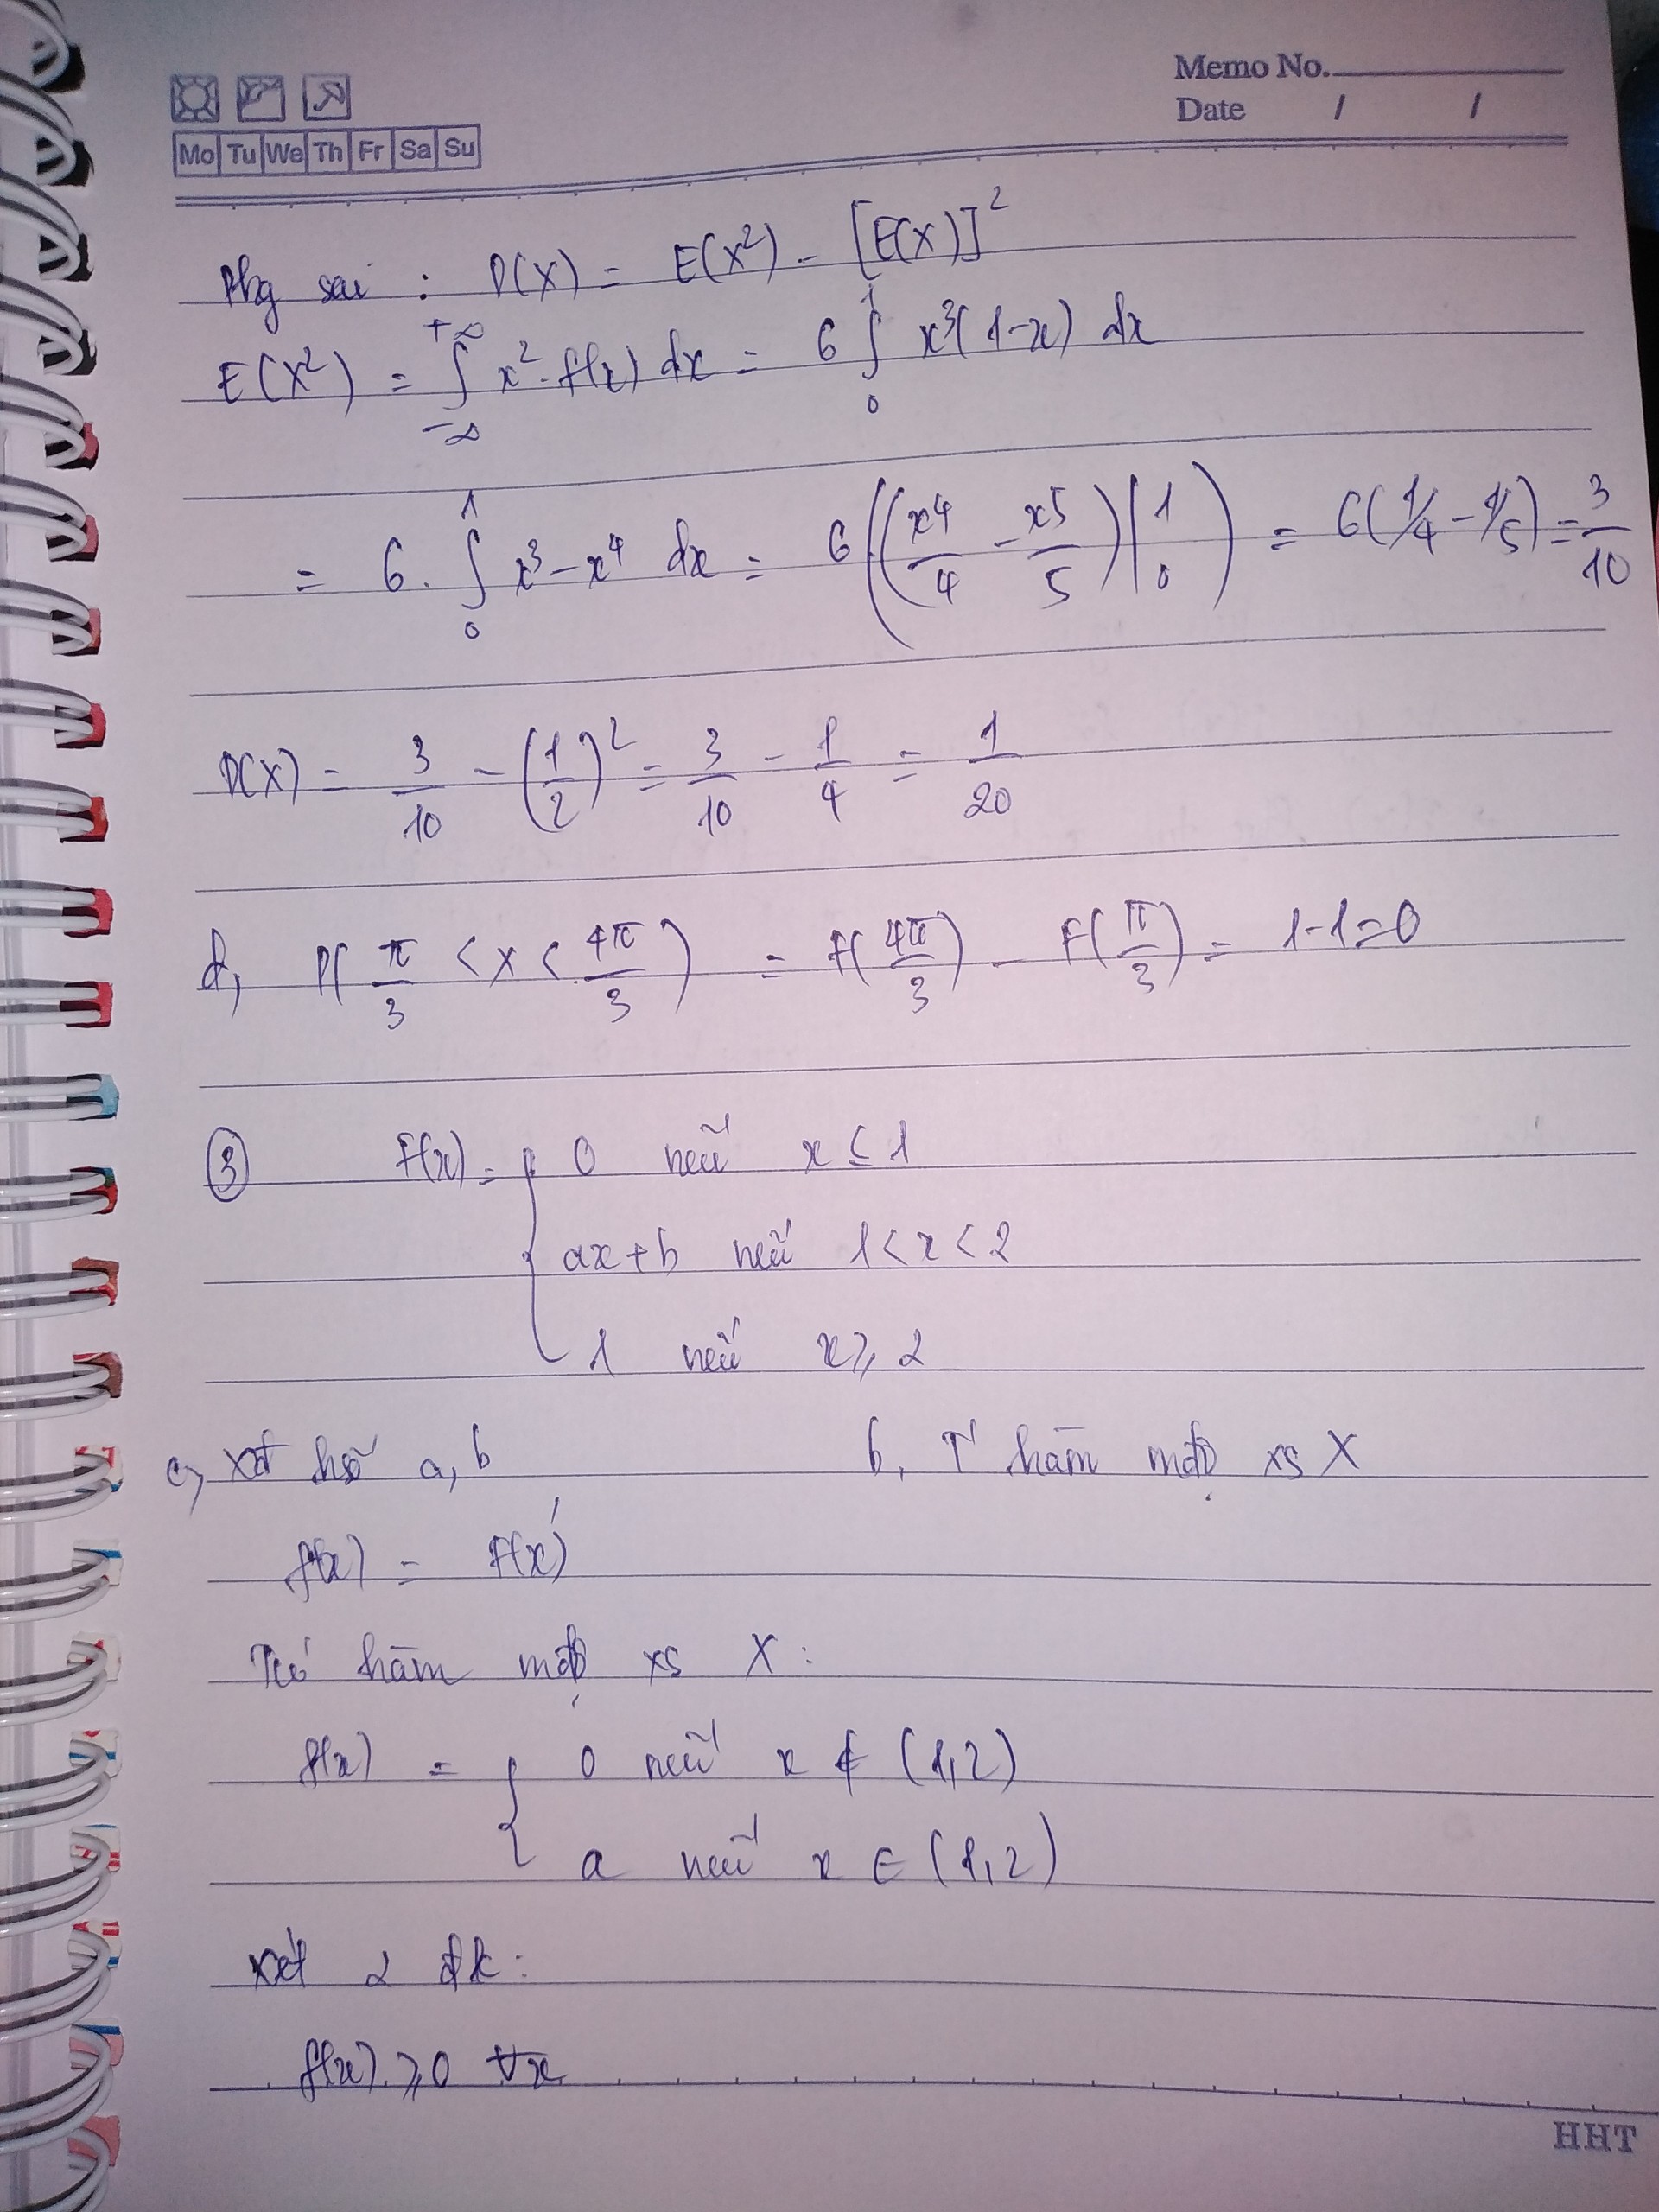 Memo No.
Date / /
Mo Tu We Th Fr Sa Su
Phg sai : D(X) = E(X²) - [E(X)]²
E(X²) = ∫_{-∞}^{+∞} x² · f(x) dx = 6 ∫_0^1 x³(1-x) dx
= 6 · ∫_0^1 x³ - x⁴ dx = 6((x⁴/4 - x⁵/5)|_0^1) = 6(1/4 - 1/5) = 3/10
D(X) = 3/10 - (1/2)² = 3/10 - 1/4 = 1/20
d, P(π/3 < X < 4π/3) = F(4π/3) - F(π/3) = 1-1=0
③ F(x) = { 0 nếu x ≤ 1
ax+b nếu 1 < x < 2
1 nếu x ≥ 2
a, b b, hàm mđộ xs X
f(x) = F(x)'
hàm mđộ xs X :
f(x) = { 0 nếu x ∉ (1,2)
a nếu x ∈ (1,2)
xét 2 đk :
f(x) ≥ 0 ∀x
HHT